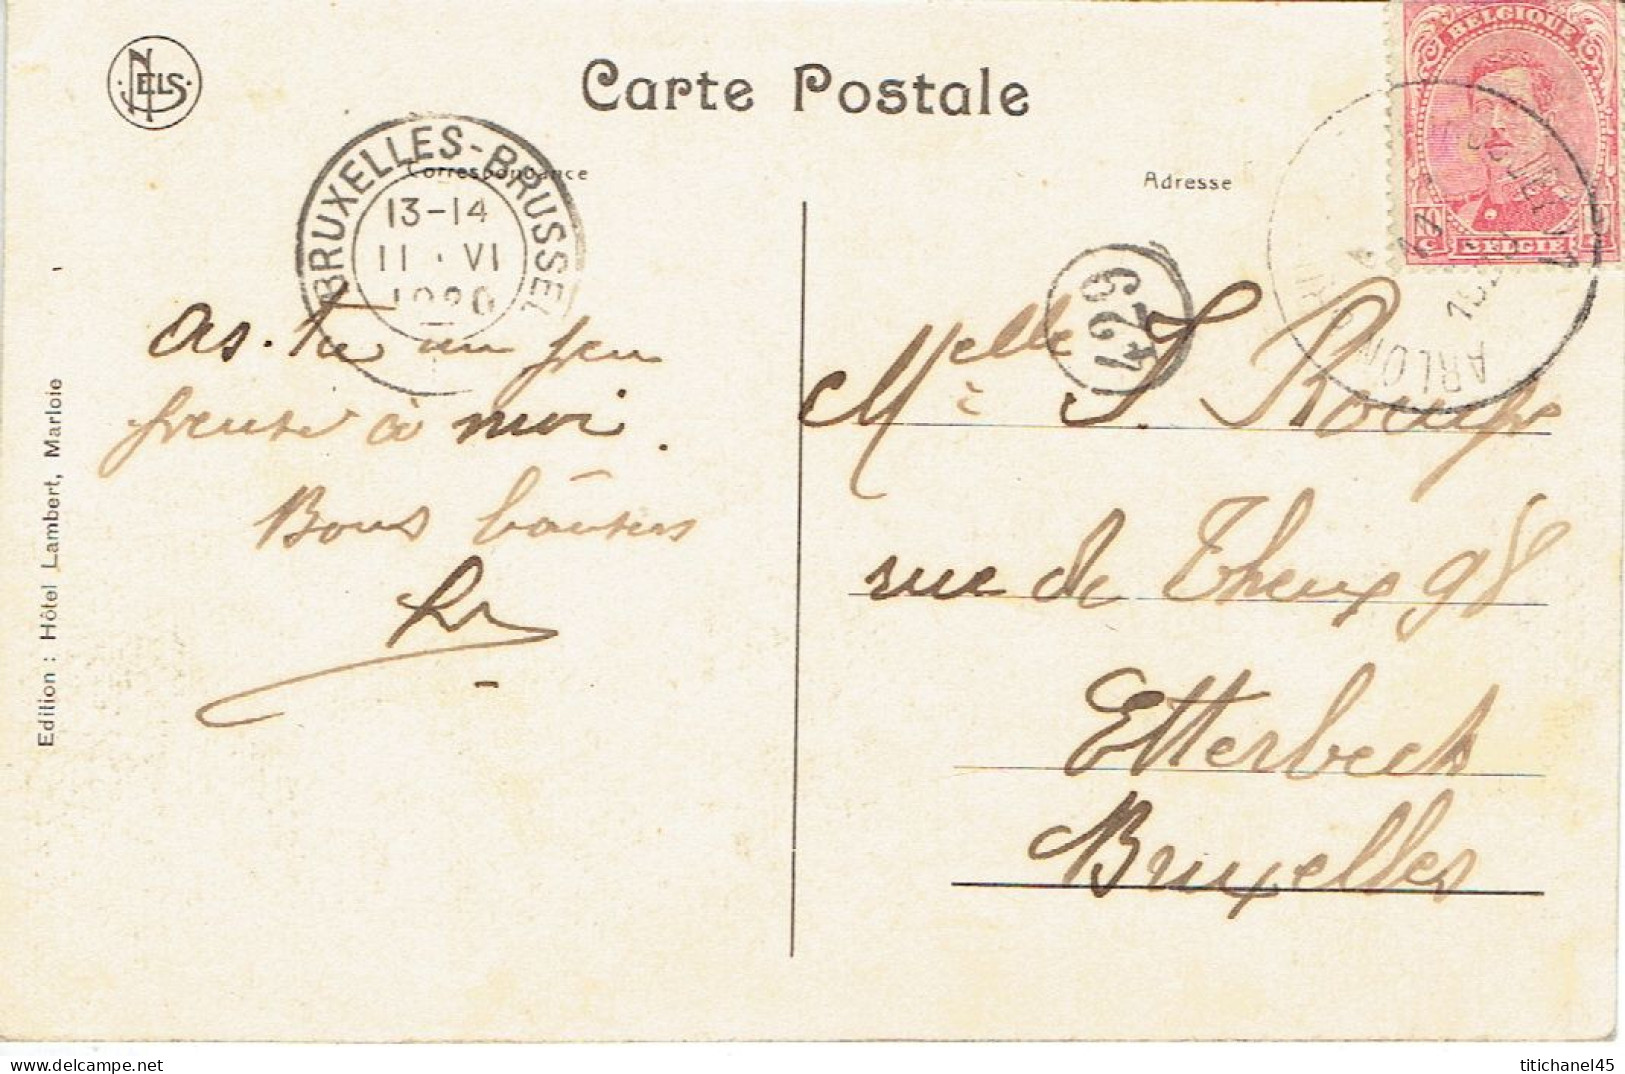 NELS
Carte Postale
Correspondance
Adresse
BRUXELLES-BRUSSEL
13-14
11 · VI
1920
BELGIQUE
BELGIË
129
ARLON
as-tu un peu
pensé à moi.
Bons baisers
Melle S. Roupe
rue de Theux 98
Etterbeek
Bruxelles
Edition : Hôtel Lambert, Marloie
Delcampe.net
titichanel45